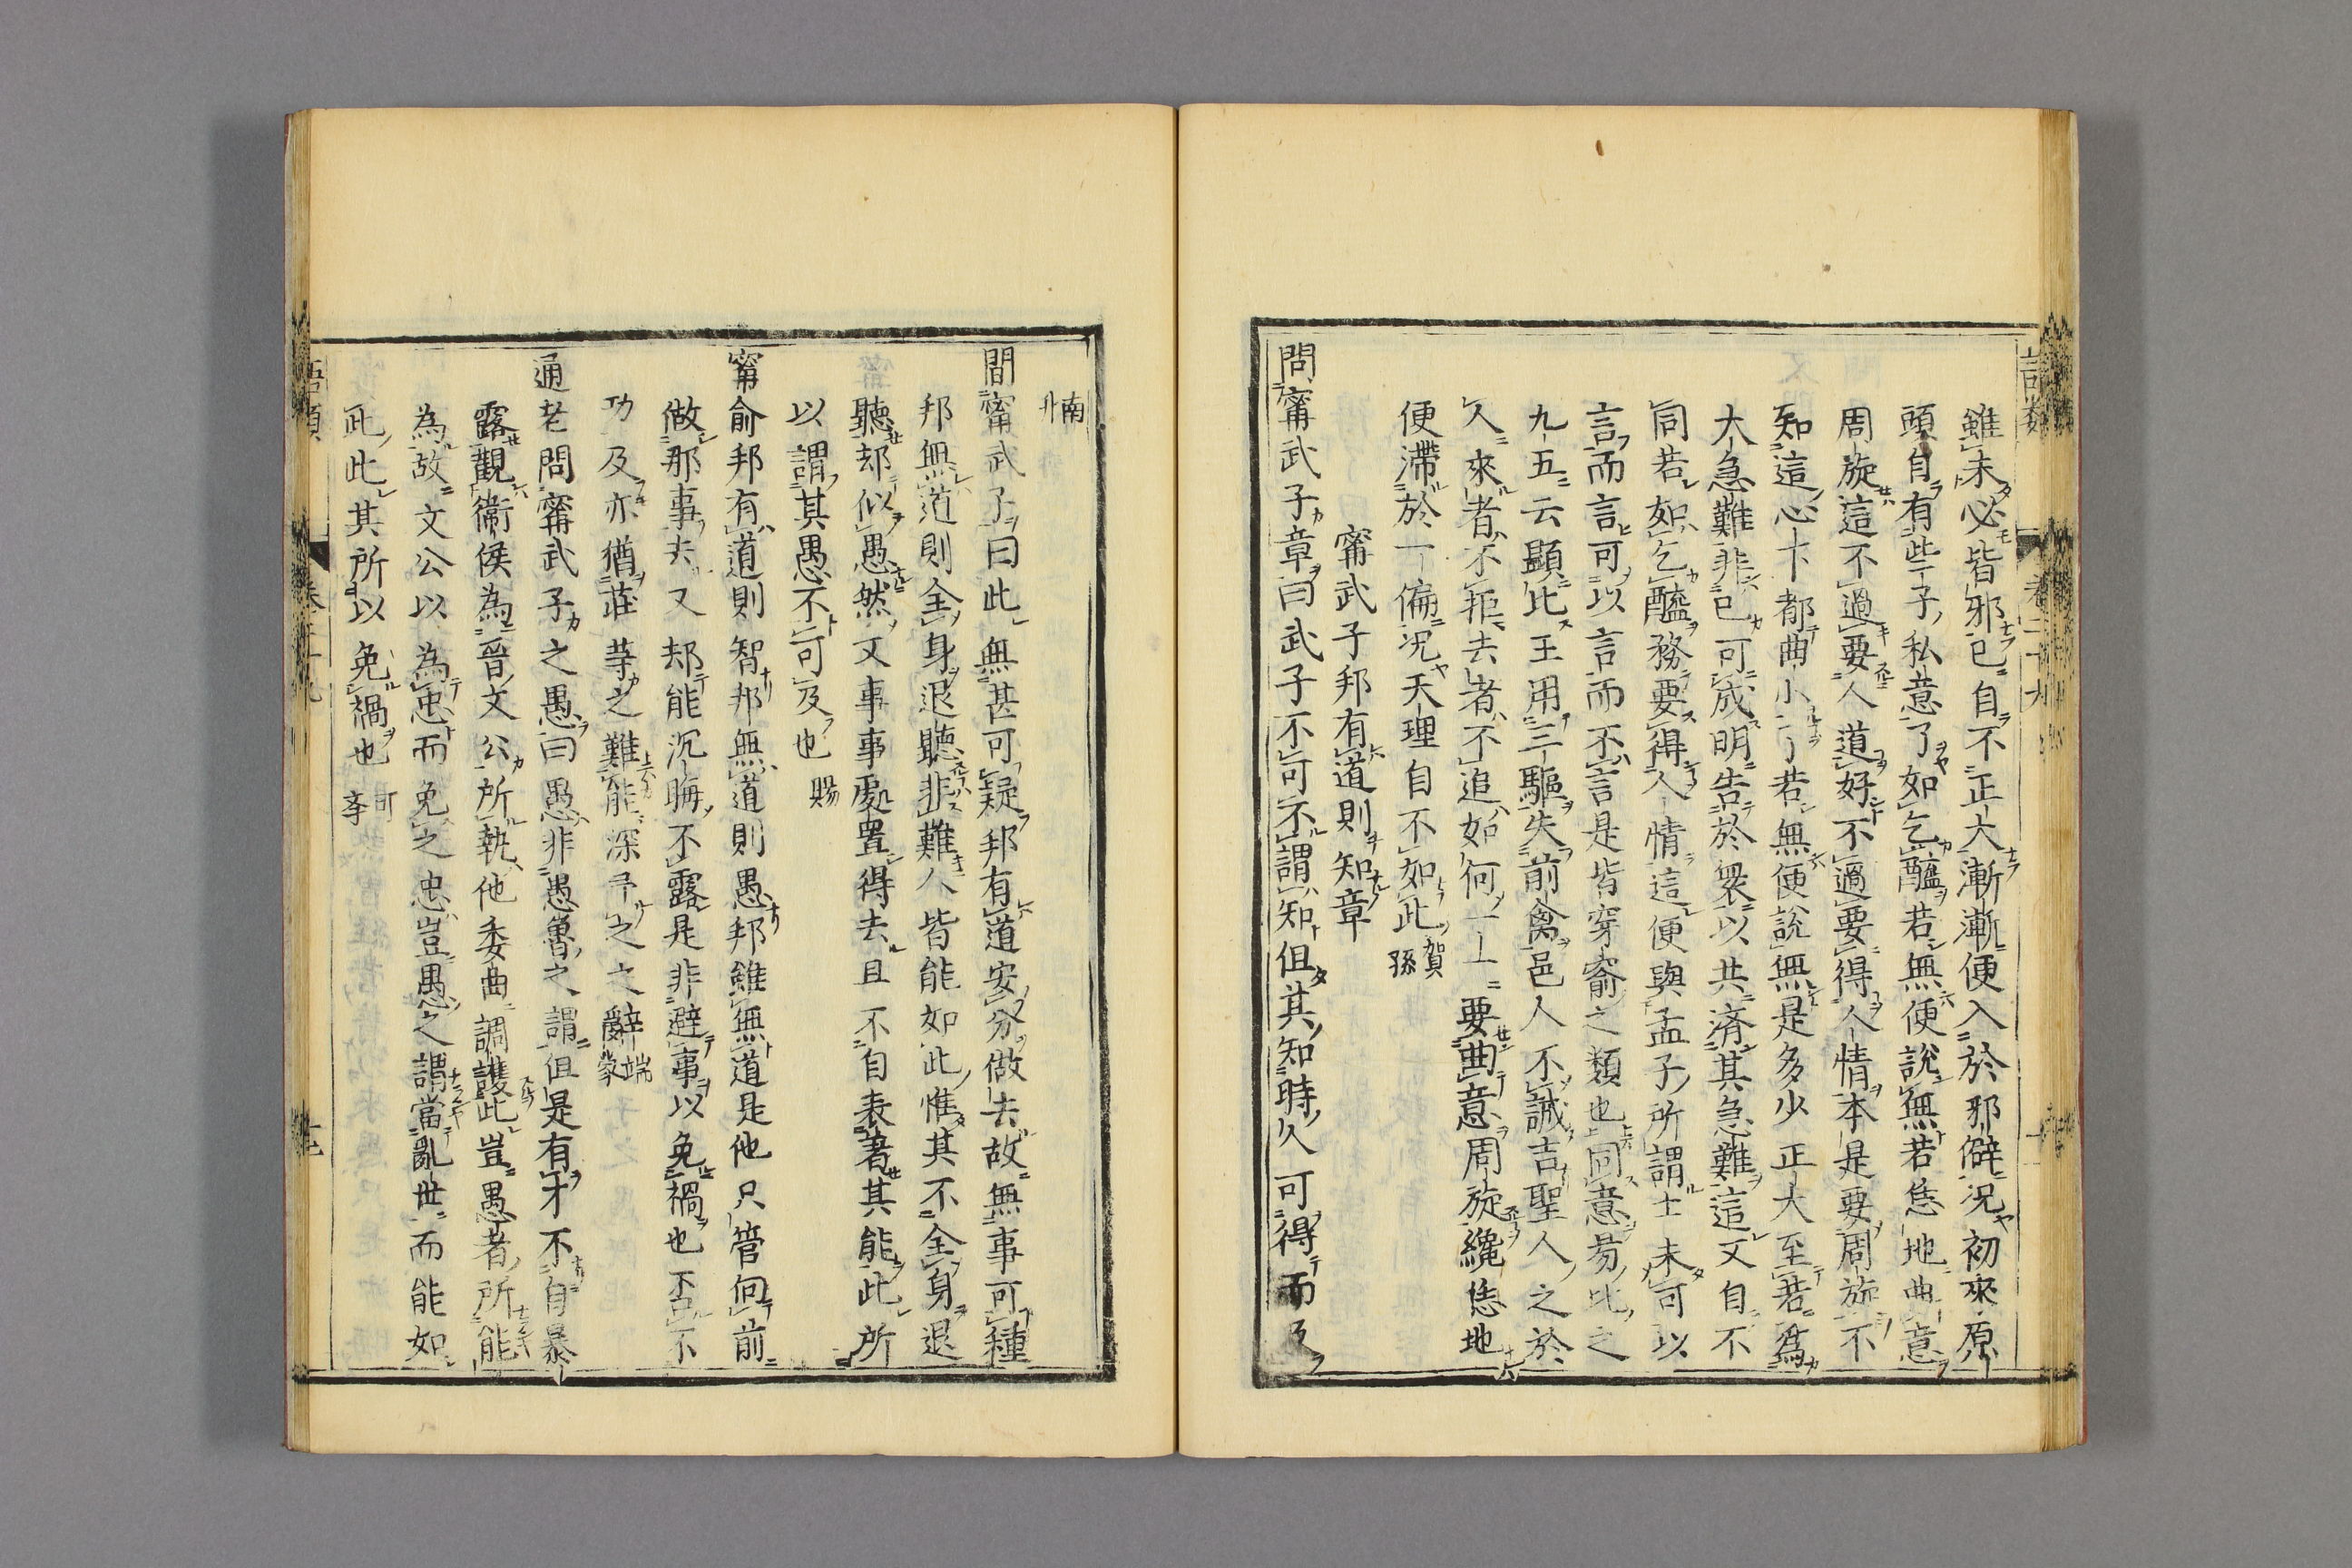 雖未必皆邪已自不正大漸漸便入於邪僻況初來原
頭自有些子私意了如乞醯若無便說無若恁地曲意
周旋這不過要人道好不過要得人情本是要周旋不
知這心下都曲小了若無便說無是多少正大至若為
大急難非已可成明告於衆以共濟其急難這又自不
同若如乞醯務要得人情這便與孟子所謂士未可以
言而言可以言而不言是皆穿窬之類也同意易比之
九五云顯比王用三驅失前禽邑人不誡吉聖人之於
人來者不拒去者不追如何一一要曲意周旋纔恁地
便滯於一偏況天理自不如此 賀孫
甯武子邦有道則知章
問甯武子章曰武子不可不謂知但其知時人可得而及
南升
問甯武子曰此無甚可疑邦有道安分做去故無事可種
邦無道則全身退聽非難人皆能如此惟其不全身退
聽却似愚然又事事處置得去且不自表著其能此所
以謂其愚不可及也 賜
甯俞邦有道則智邦無道則愚邦雖無道是他只管向前
做那事去又却能沉晦不露是非避事以免禍也否不
功及亦猶莊 之難能深 之之辭 端蒙
通老問甯武子之愚曰愚非愚魯之謂但是有才不自暴
露觀衞侯為晉文公所執他委曲調護此豈愚者所能
為故文公以為忠而免之忠豈愚之謂當亂世而能如
此此其所以免禍也 可學
語類 卷二十九